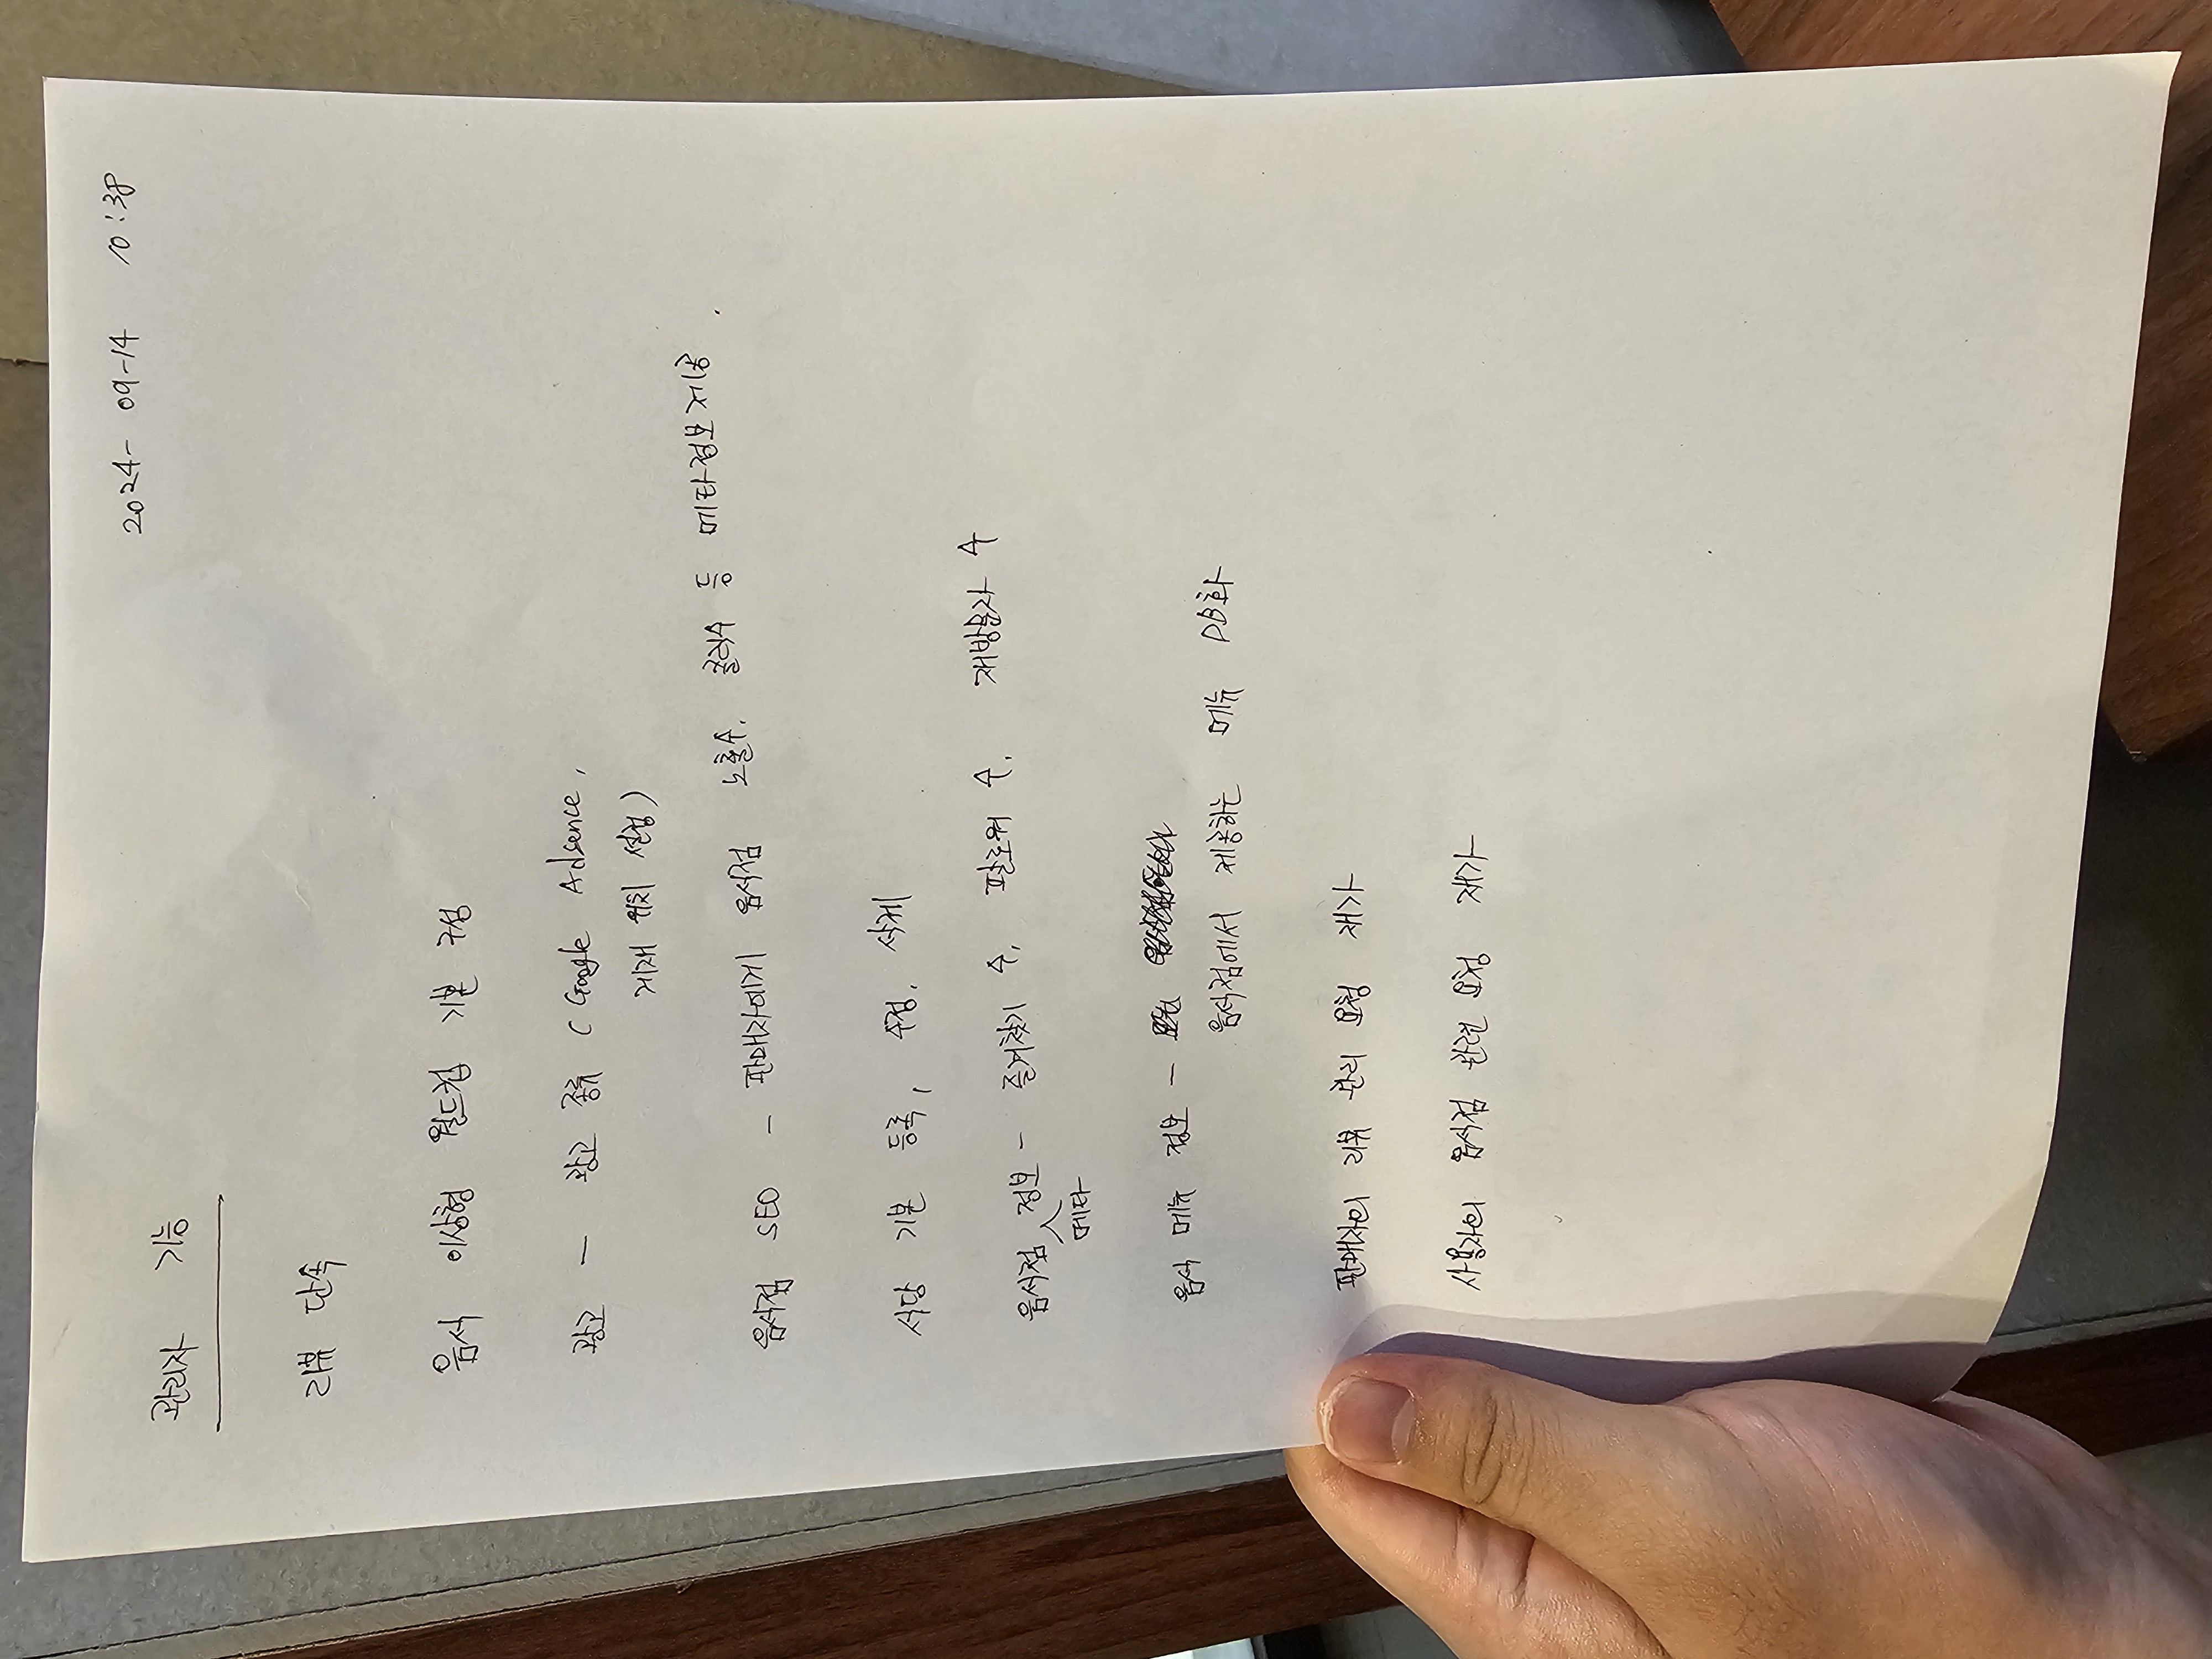 2024- 09-14 10:38
관리자 기능
리뷰 단속
음식 이상형 월드컵 기본 구성
광고 - 광고 종류 ( Google Adsence,
게재 위치 설정)
음식점 SEO - 판매자에게 음식점 노출수, 클릭수 등 메타정보제공.
식당 기본 등록, 수정, 삭제
음식점 정보 - 즐겨찾기 수, 팔로워 수, 재방문자 수
메타
음식 메뉴 정보 -
음식점에서 제공하는 메뉴 DB화
판매자의 리뷰 관리 요청 재가
사용자의 음식점 관련 요청 재가